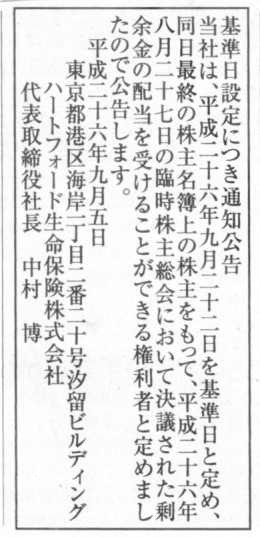 基準日設定につき通知公告
当社は、平成二十六年九月二十二日を基準日と定め、
同日最終の株主名簿上の株主をもって、平成二十六年
八月二十七日の臨時株主総会において決議された剰
余金の配当を受けることができる権利者と定めまし
たので公告します。
平成二十六年九月五日
東京都港区海岸一丁目二番二十号汐留ビルディング
ハートフォード生命保険株式会社
代表取締役社長 中村 博